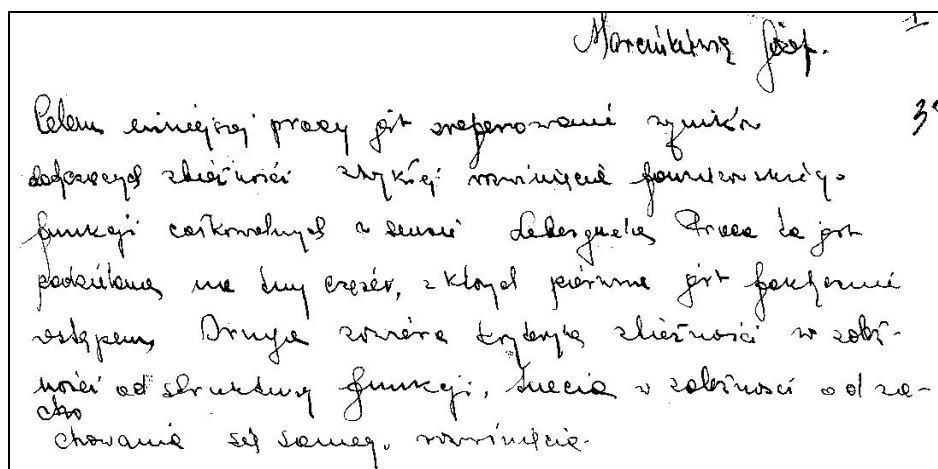 Marcinkiewicz Józef. 1
Celem niniejszej pracy jest zreferowanie wyników 3°
dotyczących zbieżności zwykłej rozwinięcia fourierowskiego
funkcji całkowalnych w sensie Lebesgue'a Praca ta jest
podzielona na trzy części, z których pierwsza jest faktycznie
wstępem Druga zawiera kryteria zbieżności w zależ-
ności od struktury funkcji, trzecia w zależności od za-
cho
chowania się samego rozwinięcia.